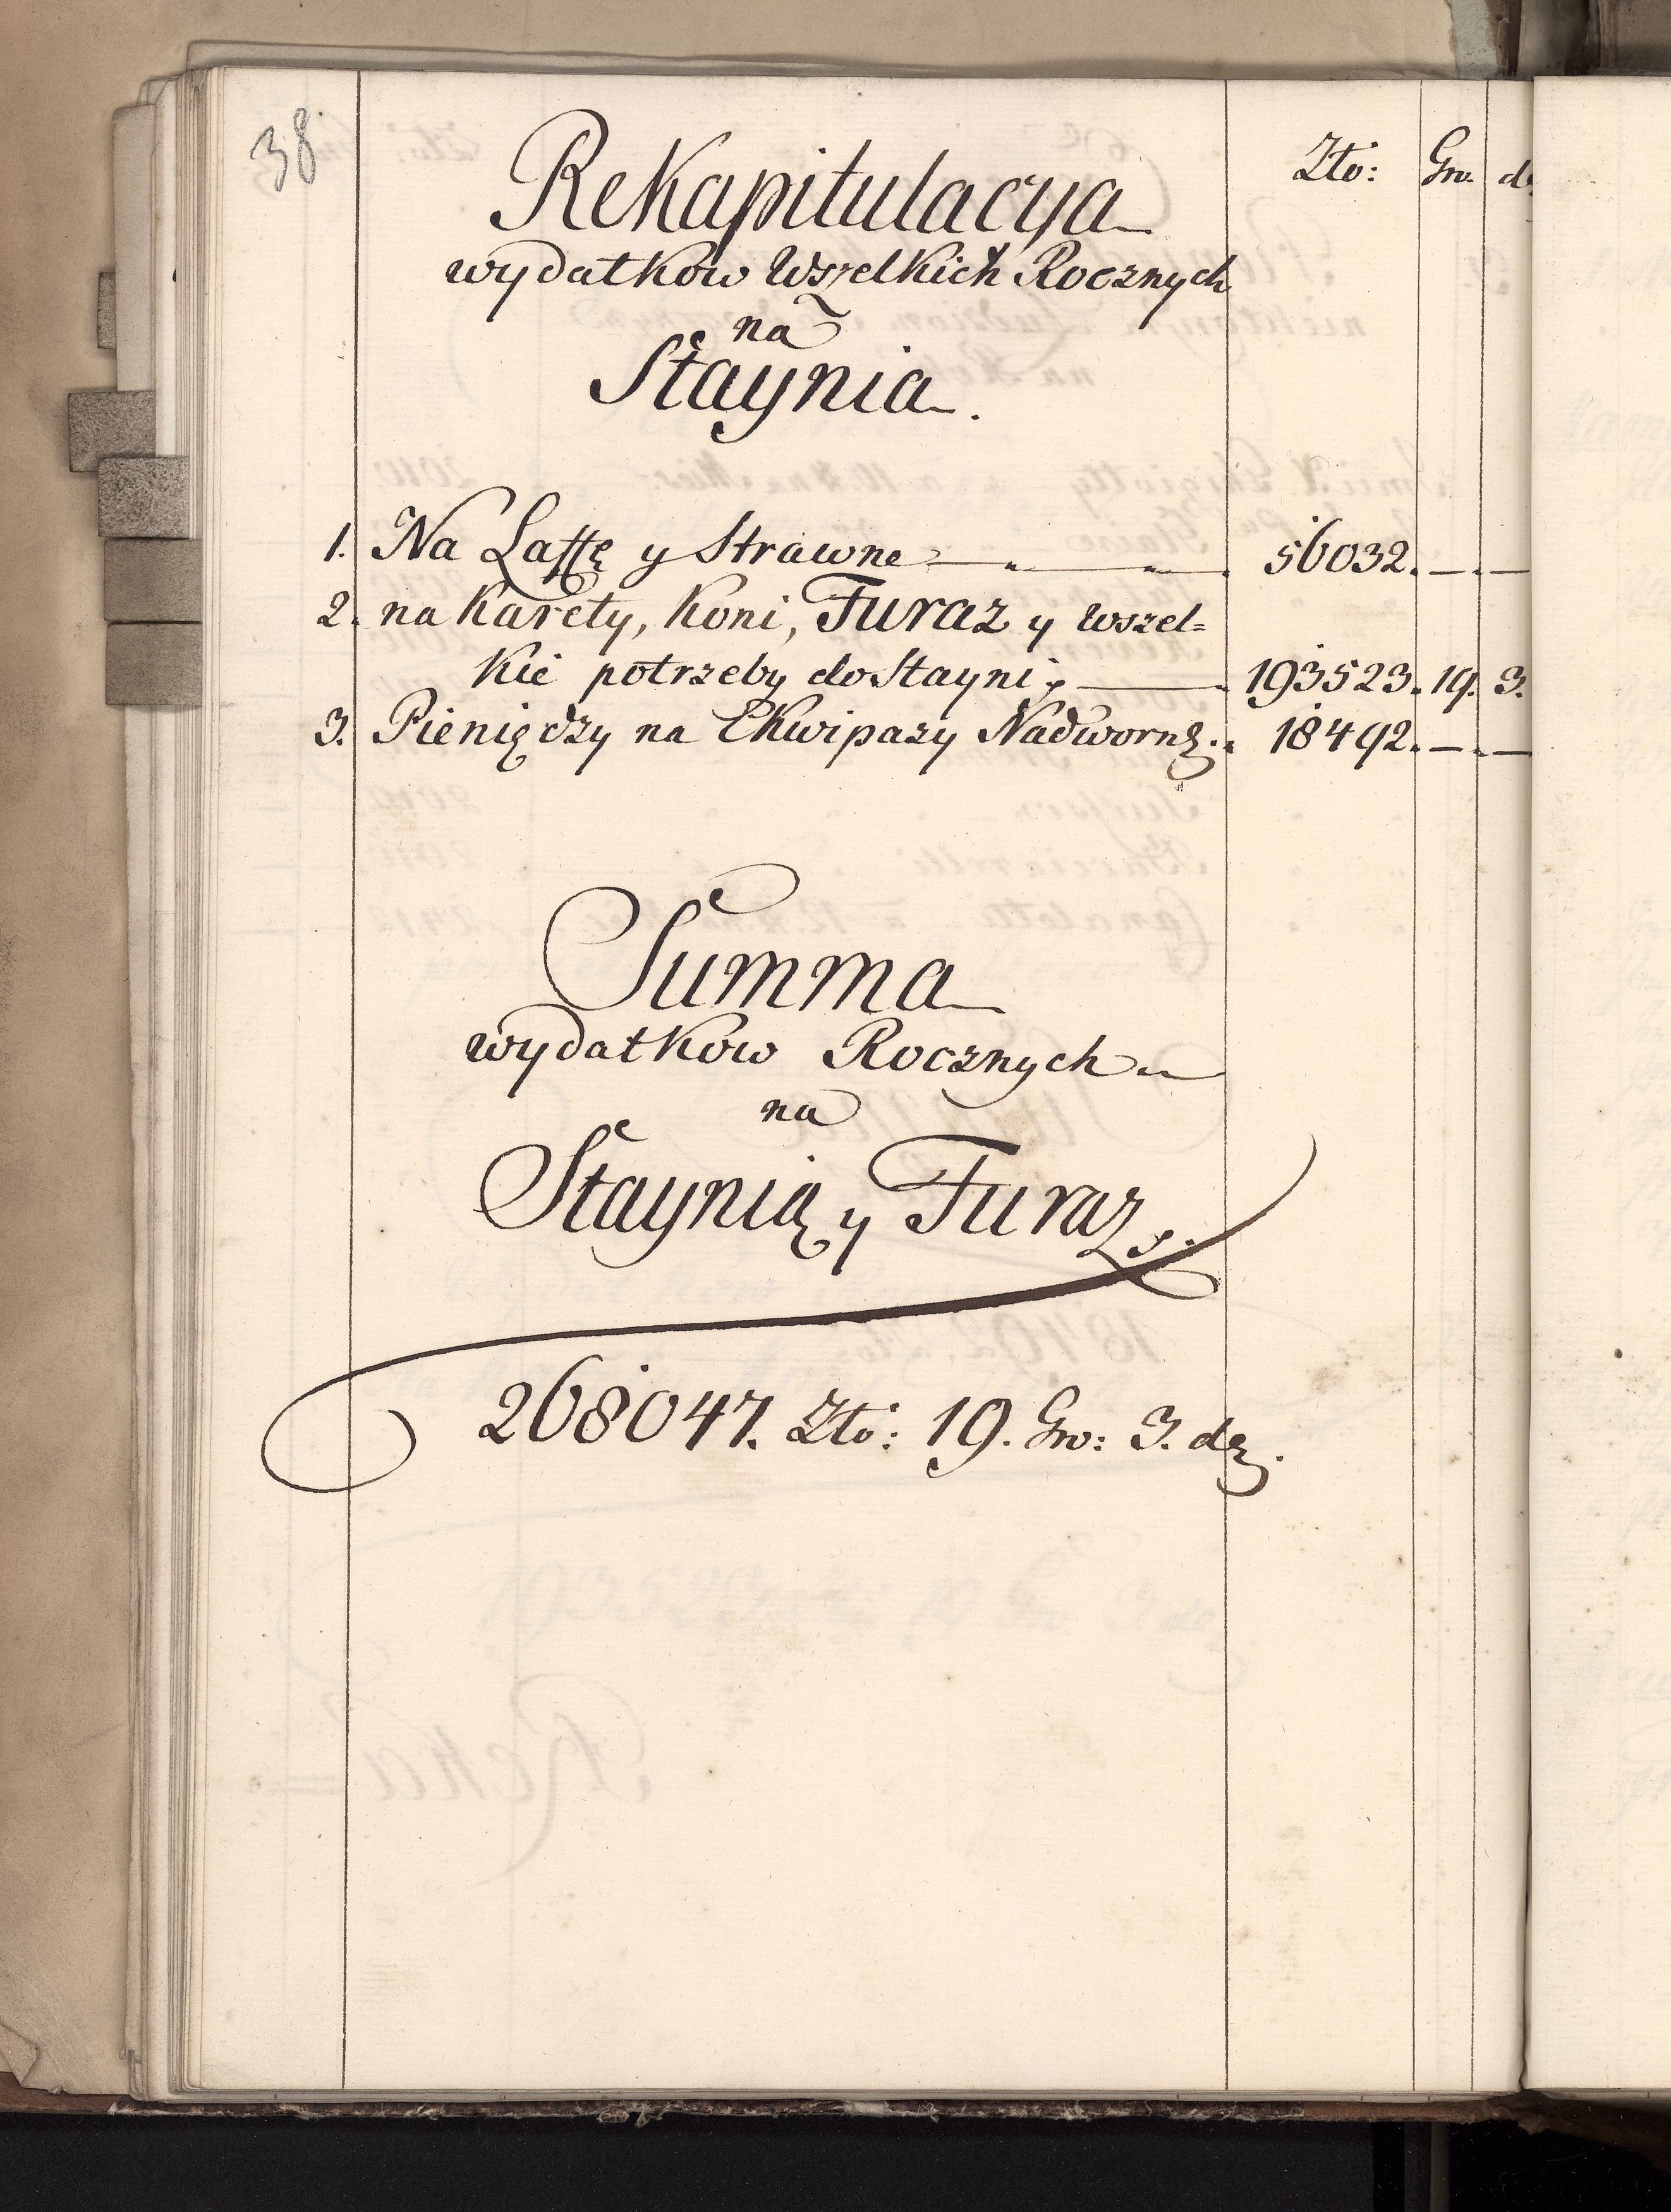 38
Zło: Gro. d
Rekapitulacya
wydatkow Wszelkich Rocznych
na
Staynia.
1. Na Laffę y Strawne 56032. — —
2. na Karety, Koni, Furaz y wszel=
kie potrzeby do Stayni 193523. 19. 3.
3. Pieniędzy na Ekwipazy Nadworną. 18492. — —
Summa
wydatkow Rocznych
na
Staynią y Furaz.
268047. Zło: 19. Gro: 3. dz.